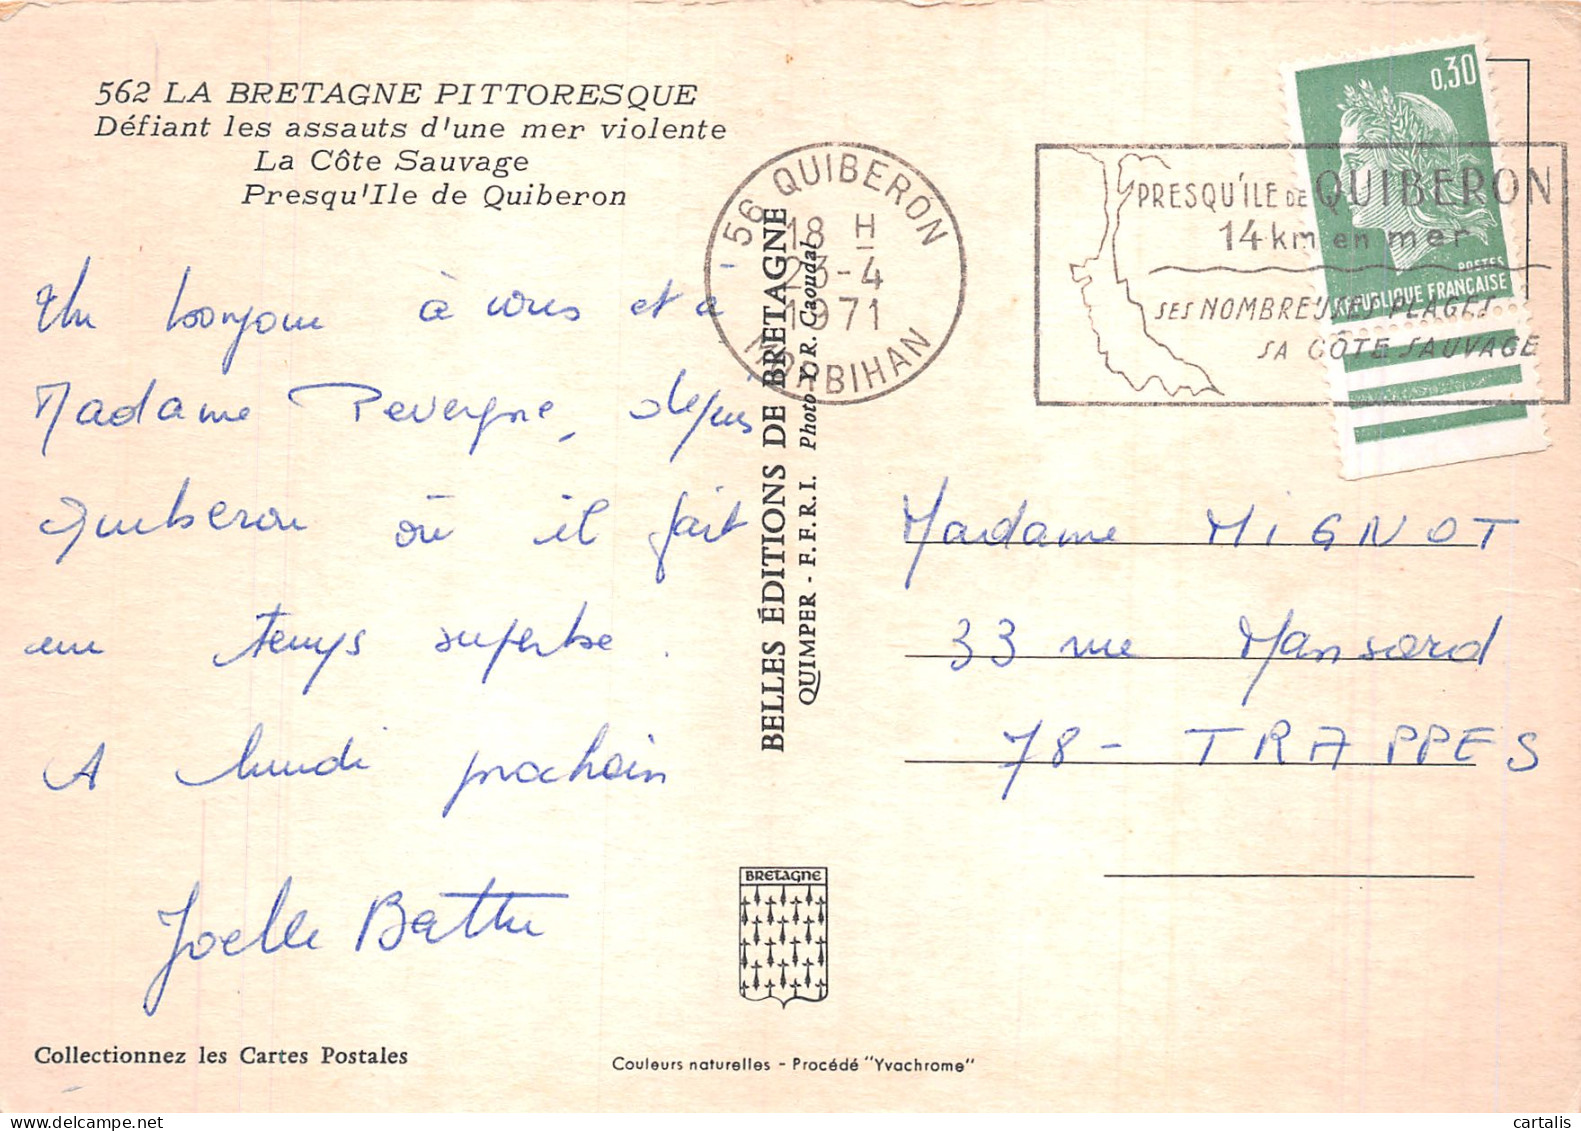 562 LA BRETAGNE PITTORESQUE
Défiant les assauts d'une mer violente
La Côte Sauvage
Presqu'Ile de Quiberon
Un bonjour à vous et à
Madame Pevergne, depuis
Quiberon où il fait
un temps superbe.
A lundi prochain
Joelle
Collectionnez les Cartes Postales
56 QUIBERON
18 H
23-4
1971
MORBIHAN
BELLES ÉDITIONS DE BRETAGNE
QUIMPER - F.F.R.I. Photo Y. R. Caoudal
BRETAGNE
Couleurs naturelles - Procédé "Yvachrome"
0,30
POSTES
REPUBLIQUE FRANÇAISE
PRESQU'ÎLE DE QUIBERON
14 km en mer
SES NOMBREUSES PLAGES
SA CÔTE SAUVAGE
Madame MIGNOT
33 rue Mansard
78 - TRAPPES
cartalis